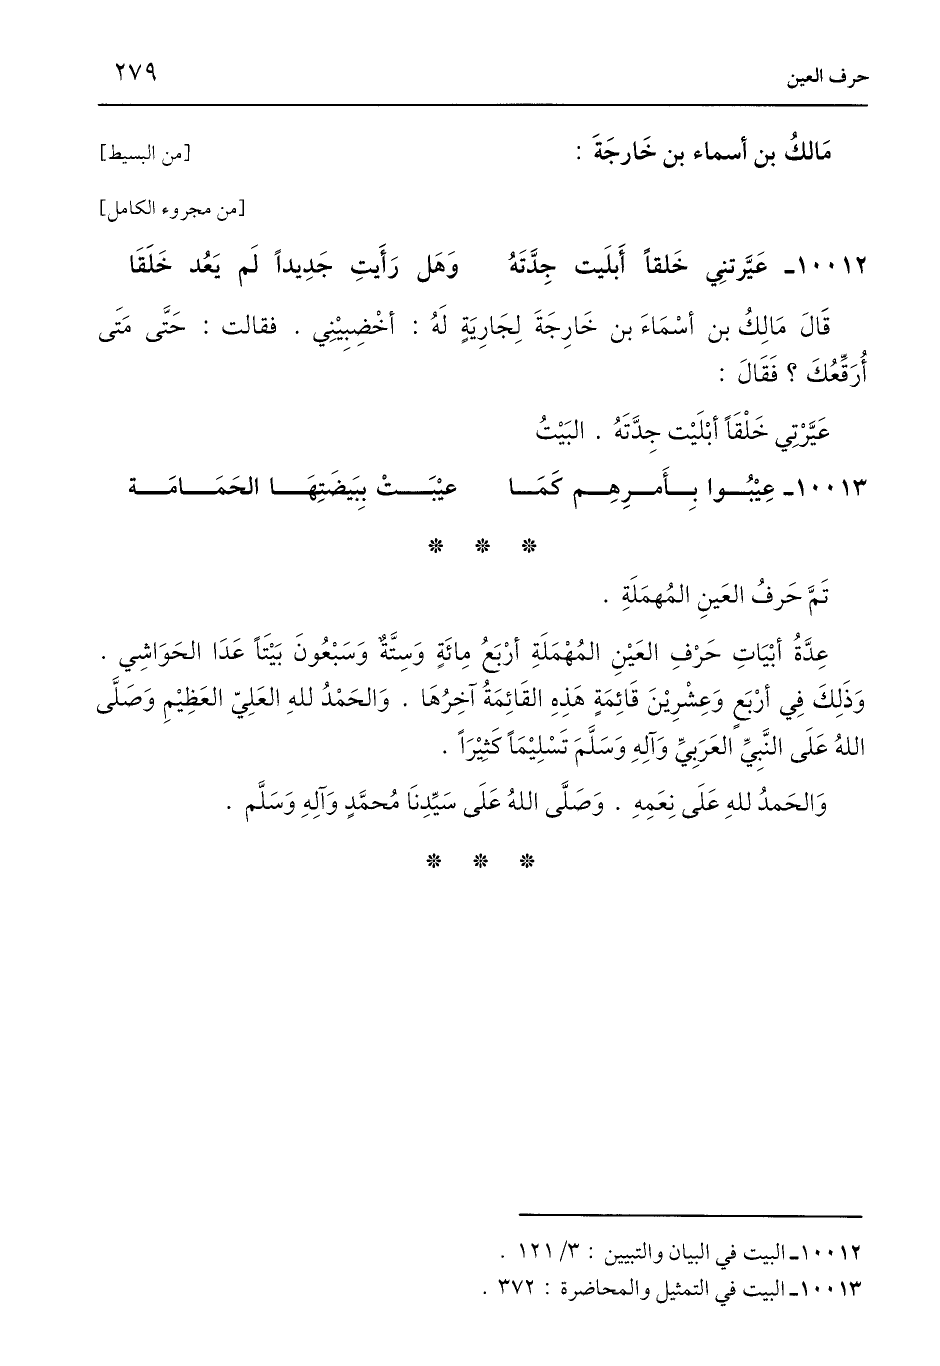 حرف العين ٢٧٩
مَالكُ بن أسماء بن خَارجَةَ : [من البسيط]
[من مجروء الكامل]
١٠٠١٢ـ عَيَّرتنِي خَلقاً أَبلَيت جِدَّتَهُ وَهَل رَأَيتِ جَدِيداً لَم يَعُد خَلَقَا
قَالَ مَالِكُ بن أسْمَاءَ بن خَارِجَةَ لِجَارِيَةٍ لَهُ : أخْضِبِيْنِي . فقالت : حَتَّى مَتَى
أُرَقِّعُكَ ؟ فَقَالَ :
عَيَّرْتِي خَلْقَاً أبْلَيْت جِدَّتَهُ . البَيْتُ
١٠٠١٣ـ عِيْبُـوا بِـأَمـرِهِـم كَمَـا عيْبَـتْ بِبَيضَتِهَـا الحَمَـامَـة
* * *
تَمَّ حَرفُ العَينِ المُهمَلَةِ .
عِدَّةُ أبْيَاتِ حَرْفِ العَيْنِ المُهْمَلَةِ أرْبَعُ مِائَةٍ وَسِتَّةٌ وَسَبْعُونَ بَيْتَاً عَدَا الحَوَاشِي .
وَذَلِكَ فِي أرْبَعٍ وَعِشْرِيْنَ قَائِمَةٍ هَذِهِ القَائِمَةُ آخِرُهَا . وَالحَمْدُ للهِ العَلِيّ العَظِيْمِ وَصَلَّى
اللهُ عَلَى النَّبِيِّ العَرَبِيِّ وَآلِهِ وَسَلَّمَ تَسْلِيْمَاً كَثِيْرَاً .
وَالحَمدُ للهِ عَلَى نِعَمِهِ . وَصَلَّى اللهُ عَلَى سَيِّدِنَا مُحمَّدٍ وَآلِهِ وَسَلَّم .
* * *
١٠٠١٢ـ البيت في البيان والتبيين : ٣/ ١٢١ .
١٠٠١٣ـ البيت في التمثيل والمحاضرة : ٣٧٢ .